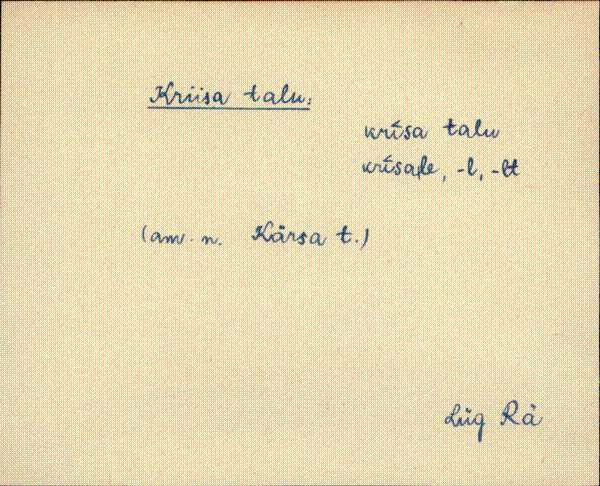 Kriisa talu:
krīsa talu
krīsalle, -l, -lt
(am. n. Kärsa t.)
Lüg Rä